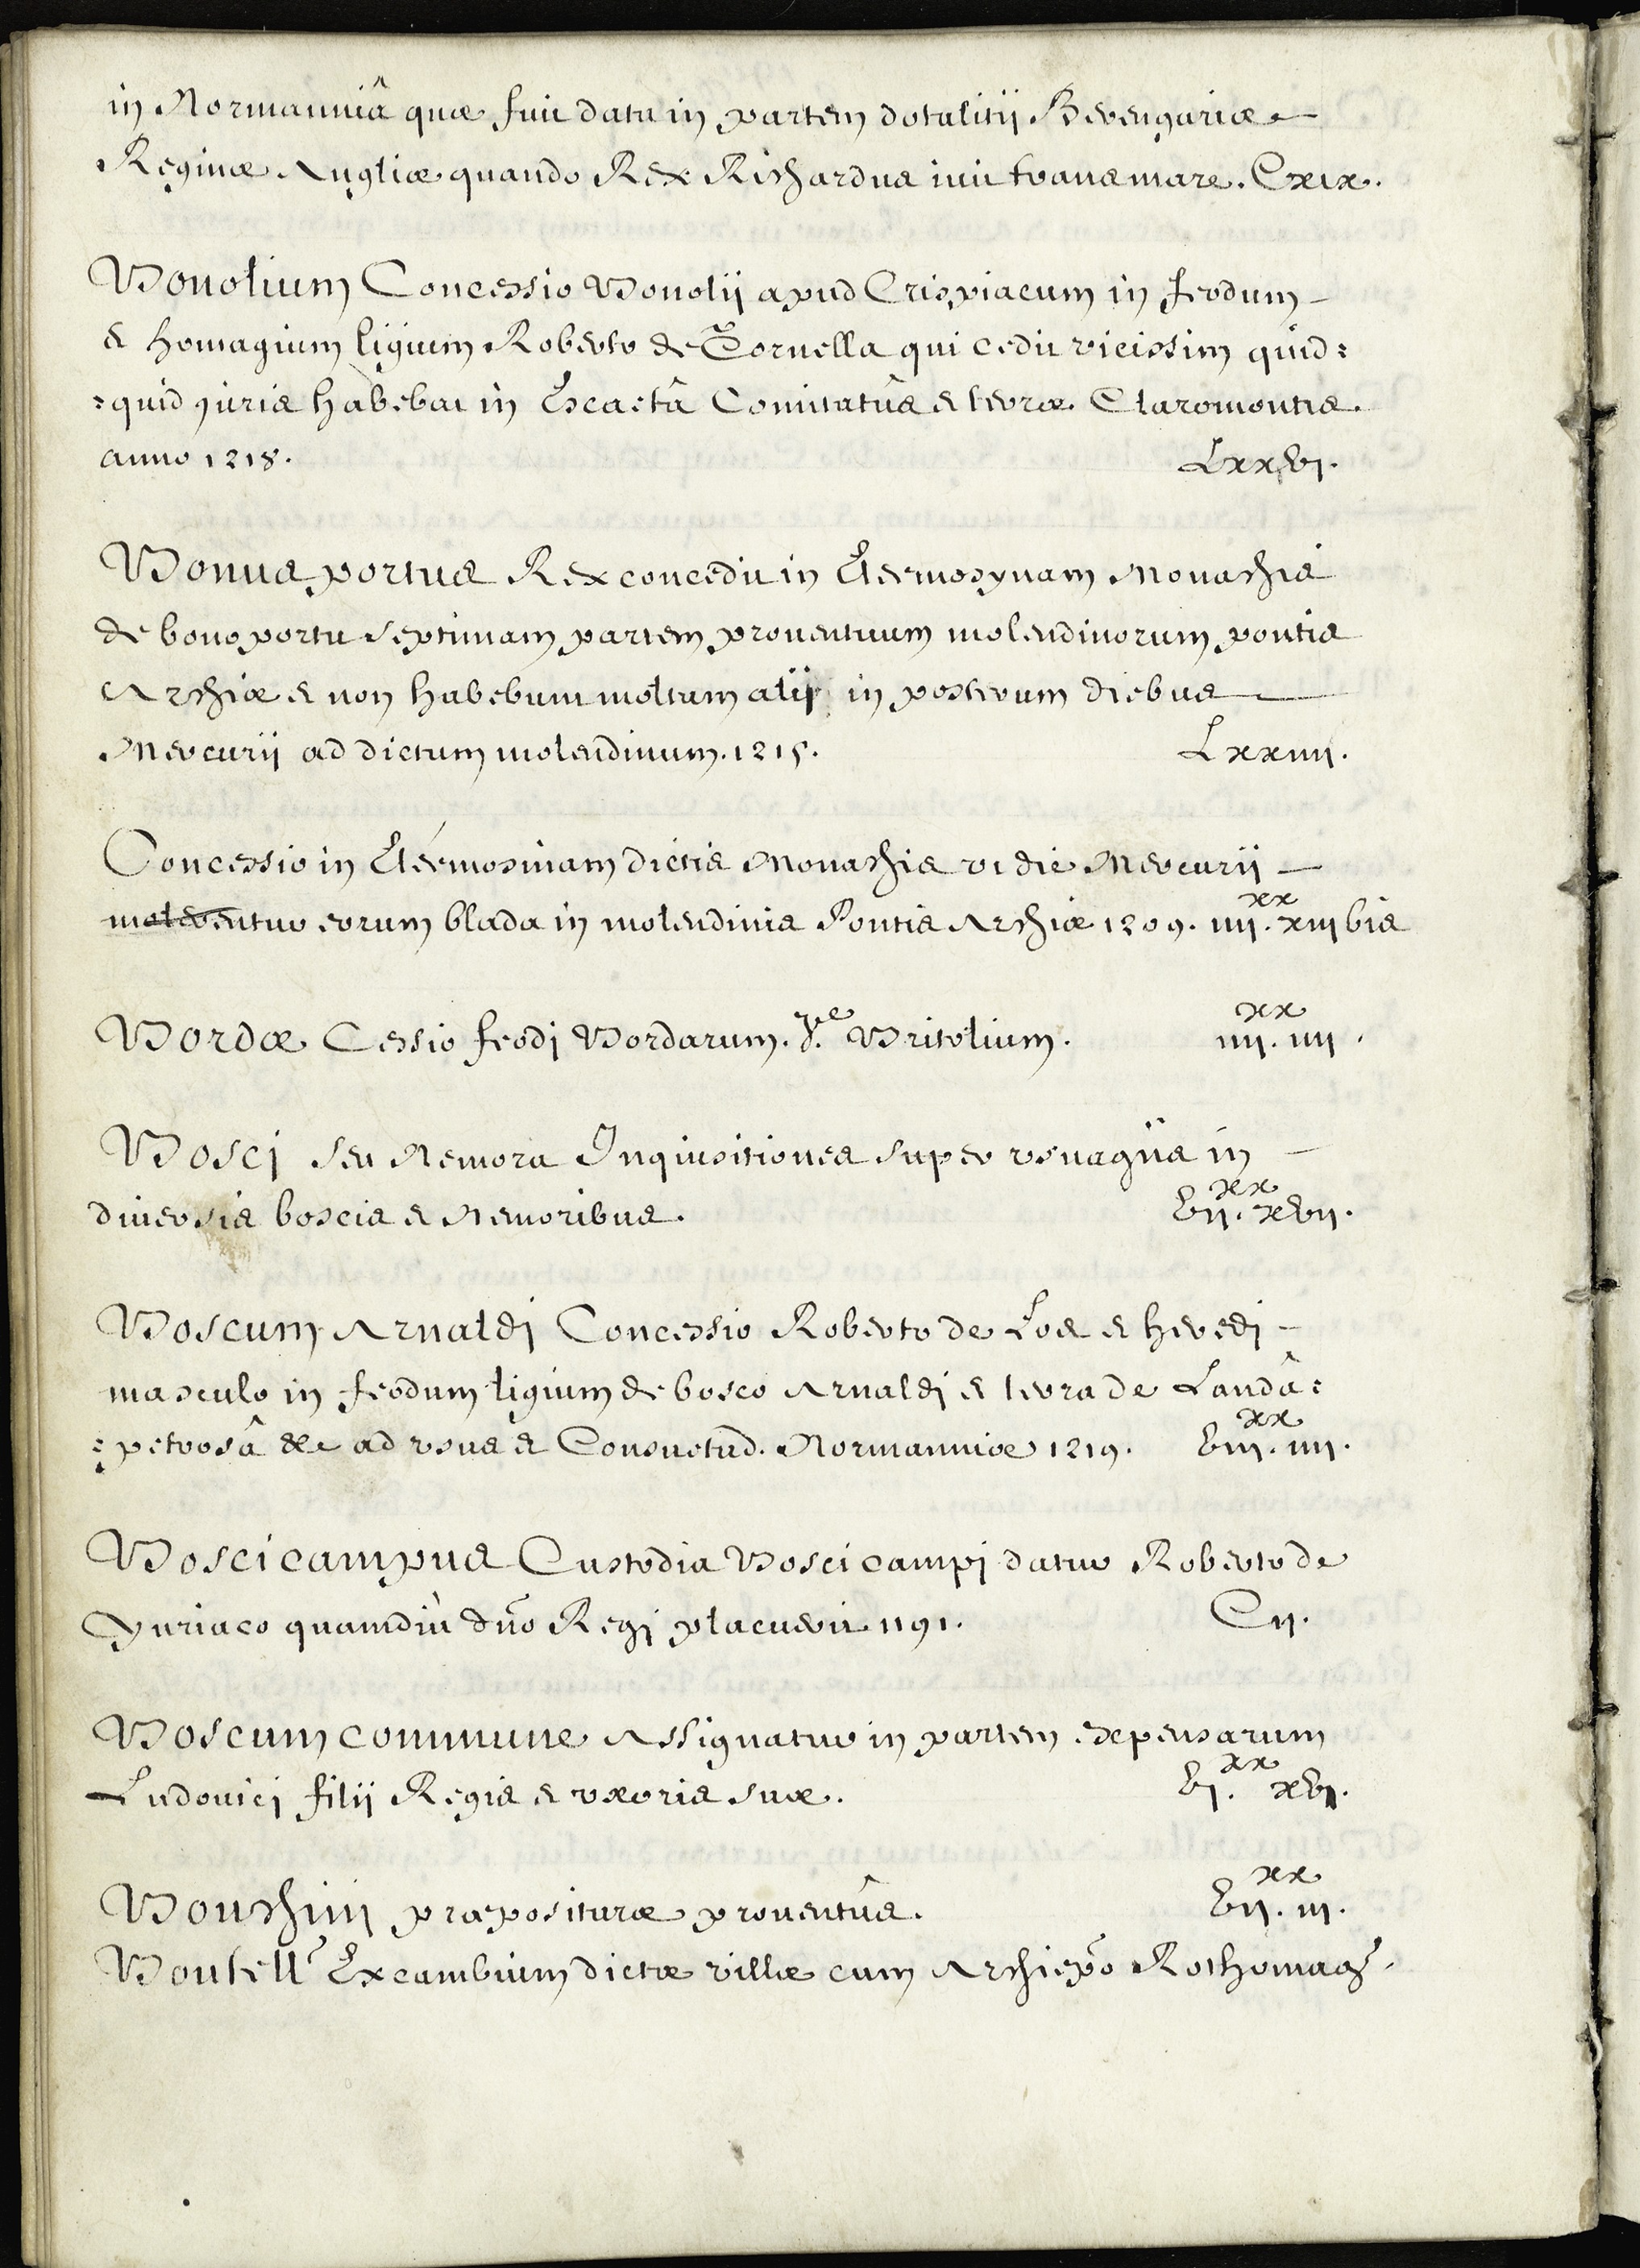 in Normanniâ quæ fuit data in partem dotalitii Berengariæ
Reginæ Angliæ quando Rex Richardus iuit trans mare. Cxix.
Bonolium Concessio Bonolij apud Crispiacum in feodum
& homagium ligium Roberto de Tornella qui cedit vicissim quid=
=quid juris habebat in Escaetâ Comitatûs & terræ Claromontis.
anno 1218. Lxxvj.
Bonus portus Rex concedit in Eleemosynam Monachis
de bono portu septimam partem prouentuum molendinorum pontis
Archiæ & non habebunt moltam alij in posterum diebus
Mercurij ad dictum molendinum. 1215. Lxxiiij.
Concessio in Eleémosinam dictis Monachis vt die Mercurij
molerentur eorum blada in molendinis Pontis Archiæ 1209. iiij.xx xiij bis
Bordæ Cessio feodj Bordarum. Britolium. iiij.xx iiij.
Boscj seu Nemora Inquisitiones super vsuagiis in
diuersis boscis & Nemoribus. vij.xx xvij.
Boscum Arnaldj Concessio Roberto de Los & heredj
masculo in feodum ligium de bosco Arnaldj & terra de Landâ=
=petrosâ &c ad vsus & Consuetud. Normanniæ 1219. viij.xx iiij.
Boscicampus Custodia Boscicampj datur Roberto de
Yuriaco quamdiù dño Regj placuerit 1191. Cij.
Boscum commune Assignatur in partem expensarum
Ludouicj filij Regis & vxoris suæ. vj.xx xvj.
Bouchinj præposituræ prouentûs. vij.xx iij.
Boutell' Excambium dictæ villæ cum Archiepõ Rothomag'